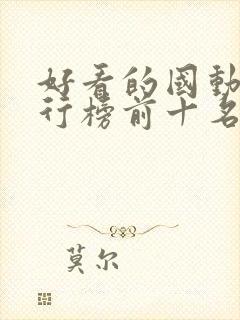 好看的国动
行榜前十名
莫尔